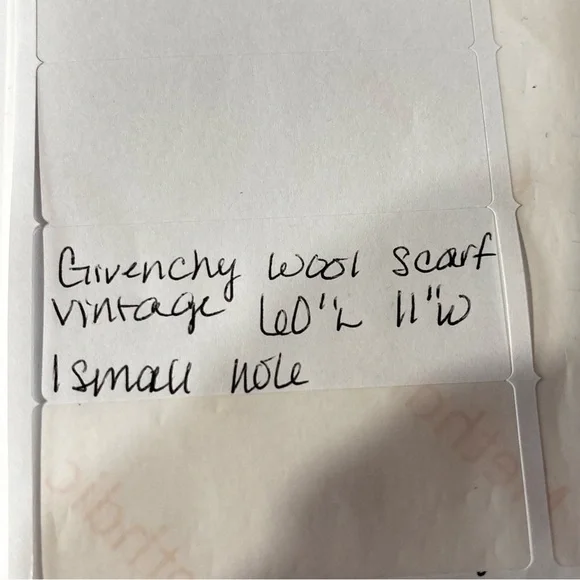 Givenchy wool scarf
vintage 60"L 11"W
1 small hole